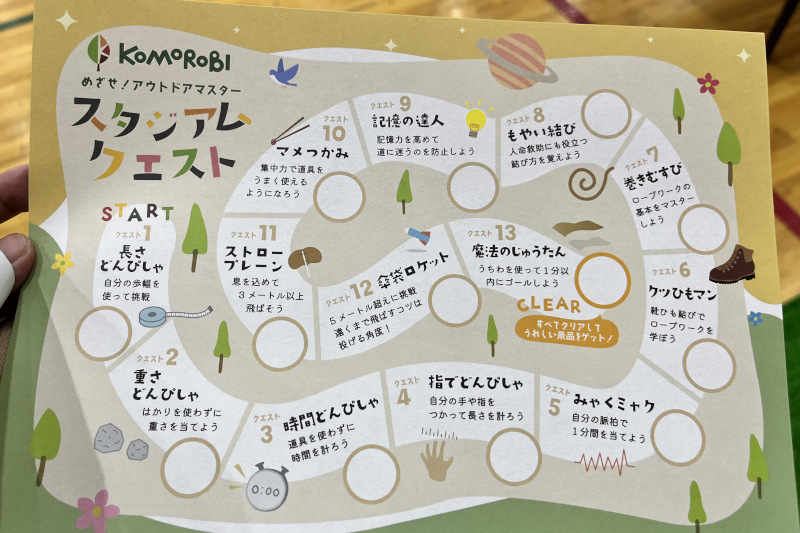 KOMOROBI
めざせ!アウトドアマスター
スタジアム
クエスト
START
クエスト1
長さ
どんぴしゃ
自分の歩幅を
使って挑戦
クエスト2
重さ
どんぴしゃ
はかりを使わずに
重さを当てよう
クエスト3
時間どんぴしゃ
道具を使わずに
時間を計ろう
0:00
クエスト4
指でどんぴしゃ
自分の手や指を
つかって長さを計ろう
クエスト5
みゃくミャク
自分の脈拍で
1分間を当てよう
クエスト6
クツひもマン
靴ひも結びで
ロープワークを
学ぼう
クエスト7
巻きむすび
ロープワークの
基本をマスター
しよう
クエスト8
もやい結び
人命救助にも役立つ
結び方を覚えよう
クエスト9
記憶の達人
記憶力を高めて
道に迷うのを防止しよう
クエスト10
マメつかみ
集中力で道具を
うまく使える
ようになろう
クエスト11
ストロー
プレーン
息を込めて
3メートル以上
飛ばそう
クエスト12
傘袋ロケット
5メートル超えに挑戦
遠くまで飛ばすコツは
投げる角度!
クエスト13
魔法のじゅうたん
うちわを使って1分以
内にゴールしよう
CLEAR
すべてクリアして
うれしい景品をゲット!